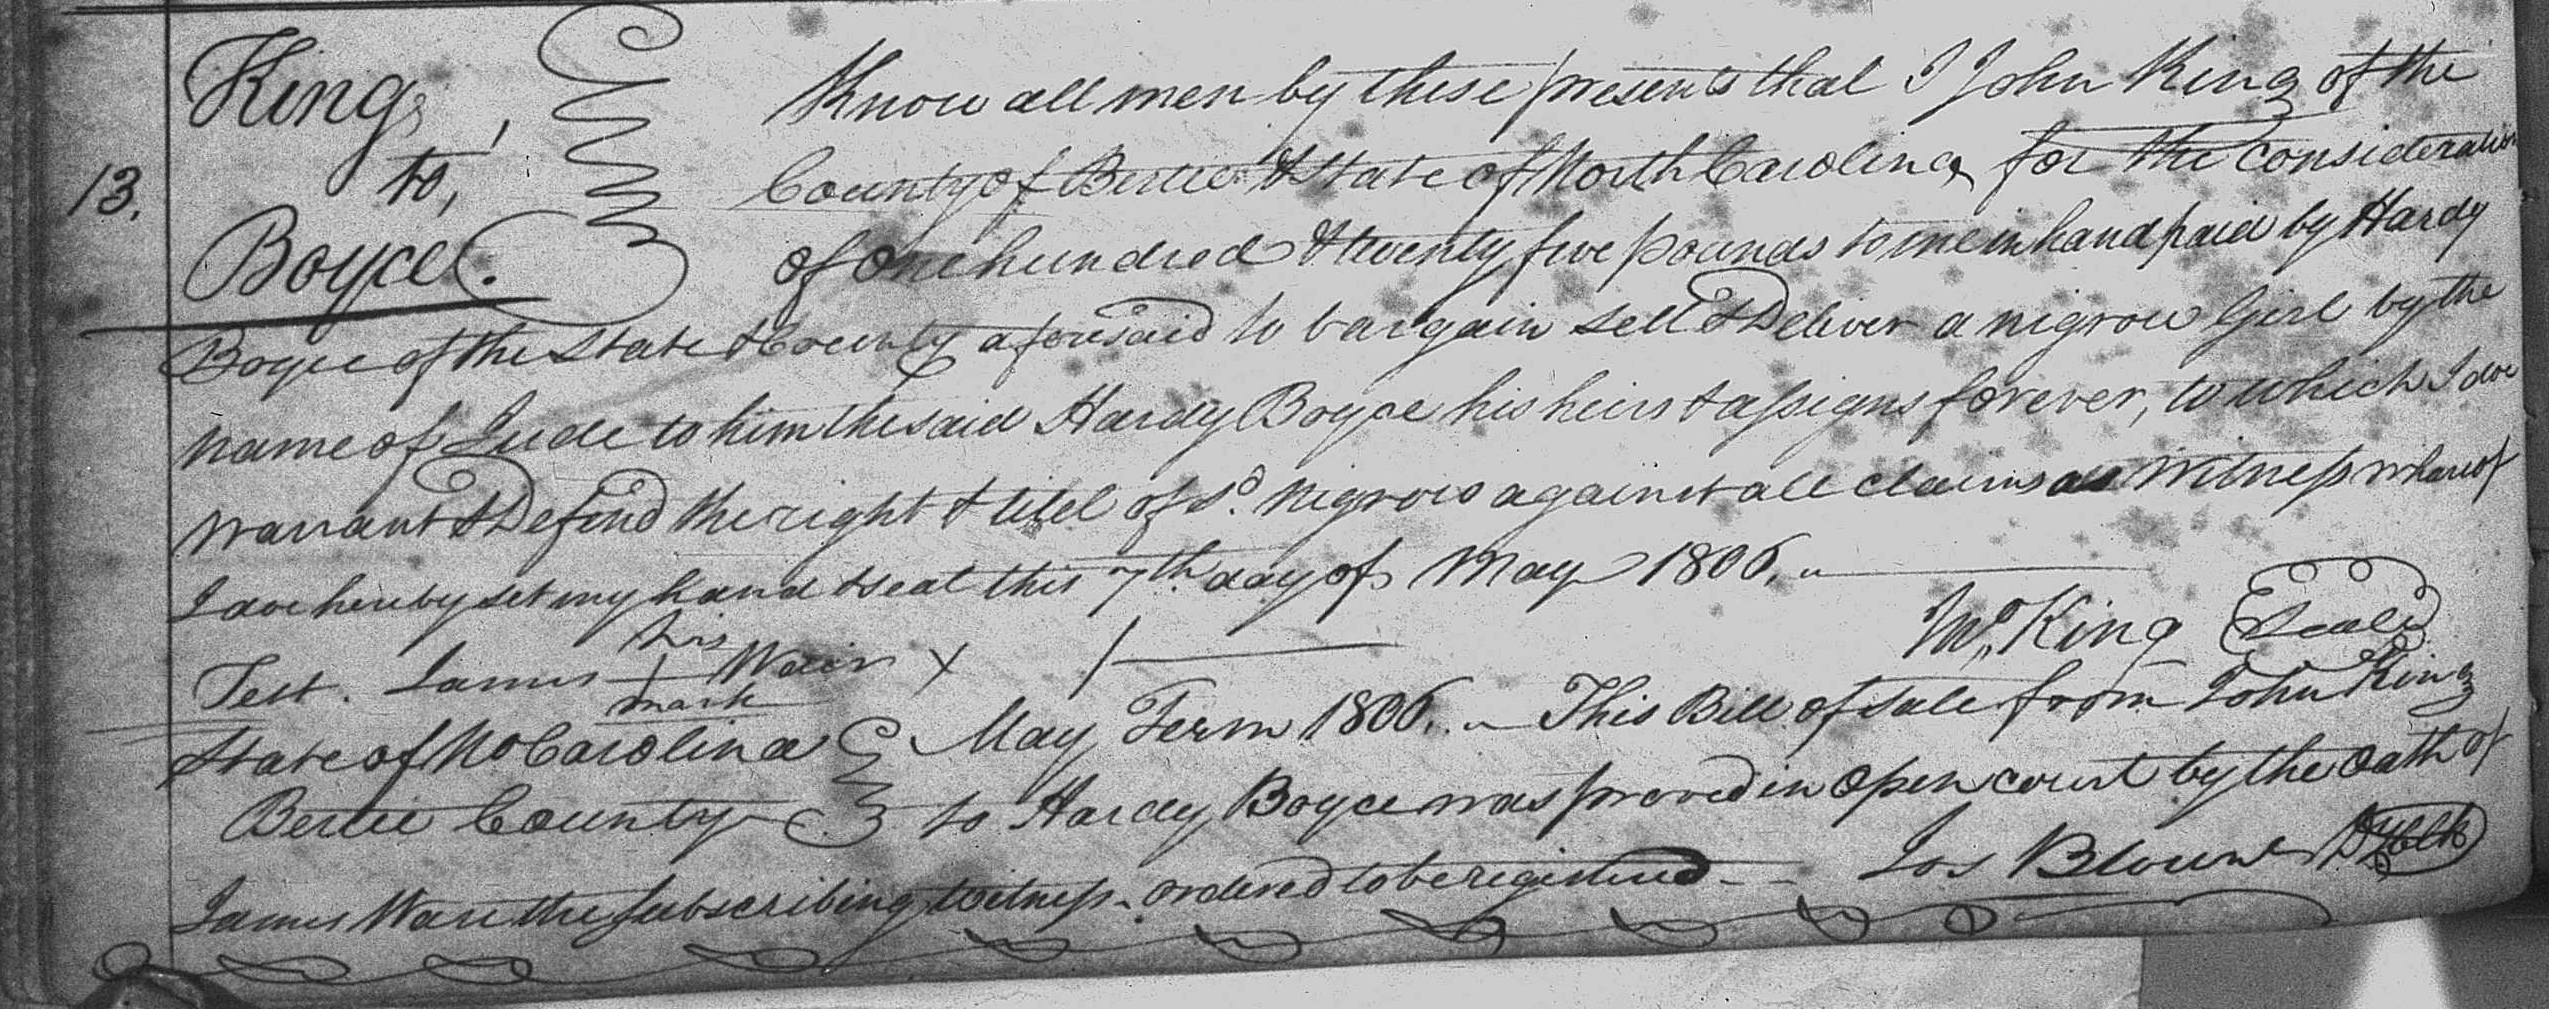 King
to,
13.
Boyce.
Know all men by these presents that I John King of the
County of Bertie & State of North Carolina for the consideration
of one hundred & twenty five pounds to me in hand paid by Hardy
Boyce of the State & County aforesaid to bargain sell & Deliver a nigrow Girl by the
name of Jude to him the said Hardy Boyce his heirs & assigns forever, to which I doe
warrant & Defend the right & titel of sd. nigrow against all claims as witness whareof
I doe hereby set my hand & seal this 7th. day of May 1806.
Jno. King Seal
his
Test. James + Wair X
mark
State of No Carolina May Term 1806. This Bill of sale from John King
Bertie County to Hardy Boyce was proved in open court by the oath of
James Ware the subscribing witness - ordered to be registered - - Jos Blount